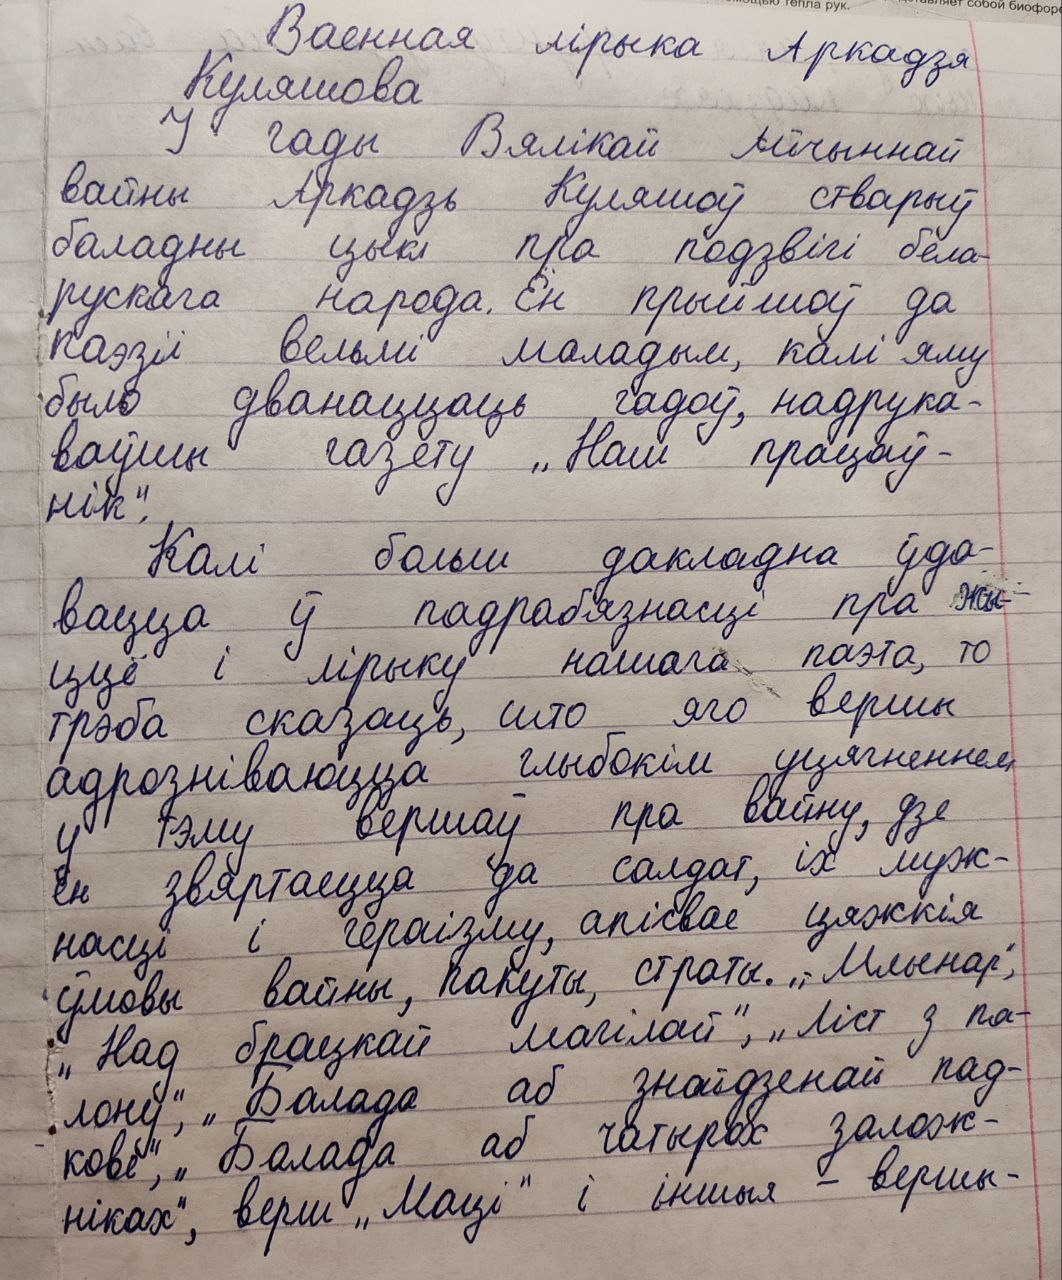 помощью тепла рук.
представляет собой биофоре
Ваенная лірыка Аркадзя
Куляшова
У гады Вялікай Айчыннай
вайны Аркадзь Куляшоў стварыў
баладны цыкл пра подзвігі бела-
рускага народа. Ён прыйшоў да
паэзіі вельмі маладым, калі яму
было дванаццаць гадоў, надрука-
ваўшы газету „Наш працаў-
нік".
Калі больш дакладна ўда-
вацца ў падрабязнасці пра жы-
ццё і лірыку нашага паэта, то
трэба сказаць, што яго вершы
адрозніваюцца глыбокім уцягненнем
у тэму вершаў пра вайну, дзе
ён звяртаецца да салдат, іх муж-
насці і гераізму, апісвае цяжкія
ўмовы вайны, пакуты, страты. „Млынар",
„Над брацкай магілай", „Ліст з па-
лону", „Балада аб знойдзенай пад-
кове", „Балада аб чатырох залож-
ніках", верш „Маці" і іншыя – вершы-